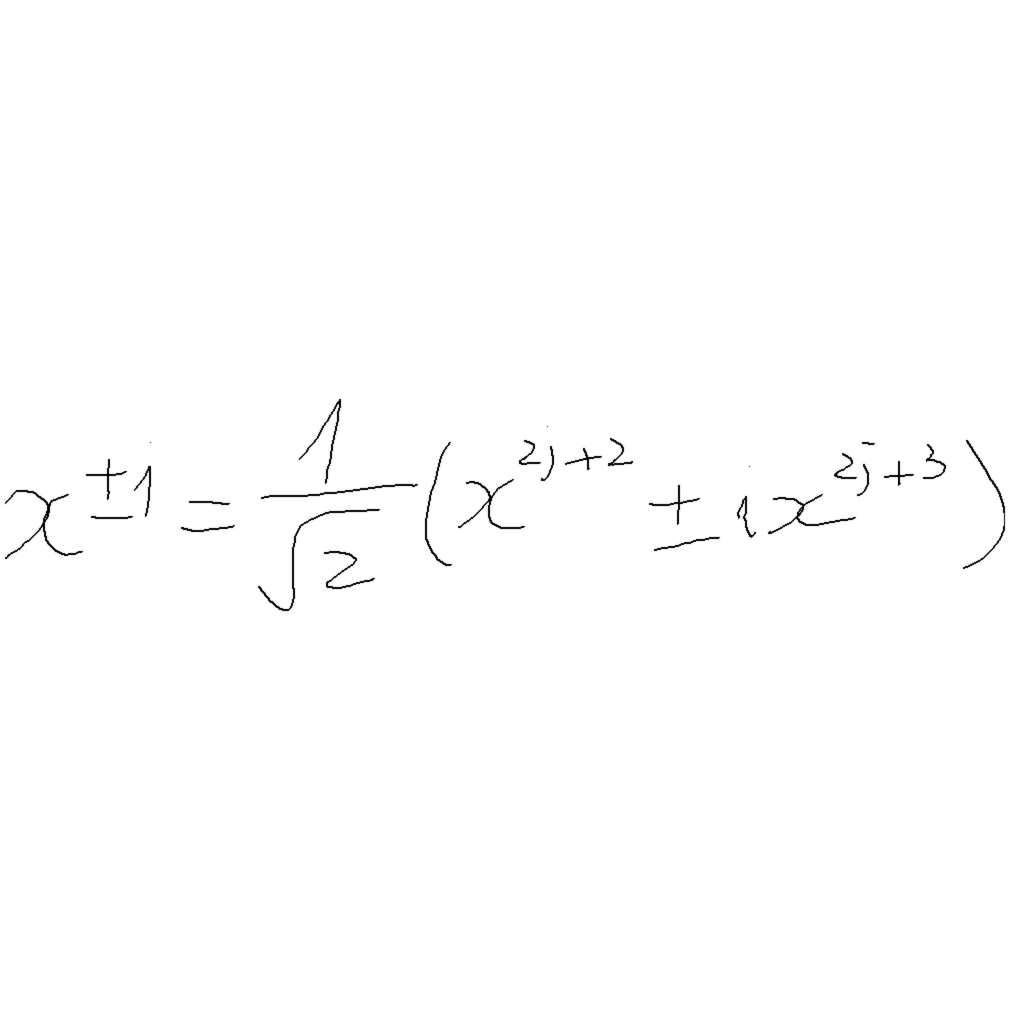 x^{±1} = \frac{1}{\sqrt{2}} (x^{2j+2} ± ix^{2j+3})